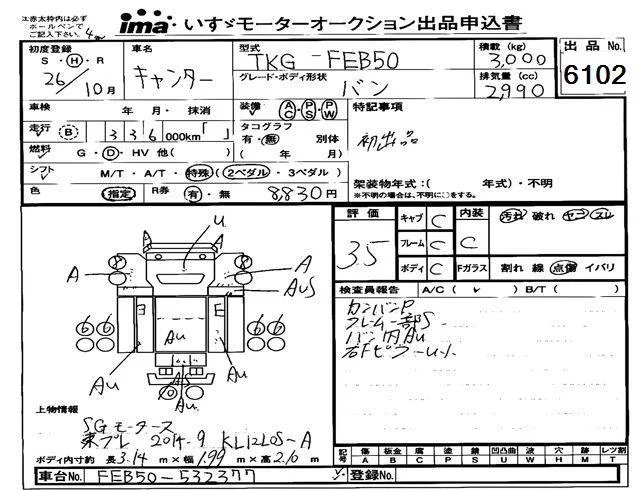 注 赤太枠内は必ず
ボールペンで
ご記入下さい。
ima いすゞモーターオークション出品申込書
初度登録 S・H・R 26/10月
車名 キャンター
型式 TKG-FEB50
積載(kg) 3,000
出品No. 6102
グレード・ボディ形状 バン
排気量(cc) 2,990
車検 年 月・ 抹消
装備 AC・PS・PW
特記事項
初出品
走行 B 336 000km「 」
タコグラフ 有・無 別体 ( 年 月)
燃料 G・D・HV 他( )
シフト M/T・A/T・特殊(2ペダル・3ペダル)
架装物年式:( 年式)・不明
※不明の場合は、不明に○をする。
色 指定
R券 有・無 8,830円
評価 3.5
キャブ C
フレーム C
ボディ C
内装 C
Fガラス
汚れ 破れ ヤニ スレ
割れ 線 点傷 イバリ
検査員報告 A/C( ✓ ) B/T( )
カンバンP
フレーム一部S
バン内AU
U
A
A
AUS
8
8
6 6
6 6
AU
AU
AU
AS
AU
上物情報
SGモータース
東プレ 2014-9 KL12LOS-A
ボディ内寸約 長3.14m×幅1.99m×高2.10m
記号 傷 A 板金 B 腐 C 塗 P 錆 S 凹凸曲 U 波 W 穴 H 跡 M レツ割 T
車台No. FEB50-532377
登録No.